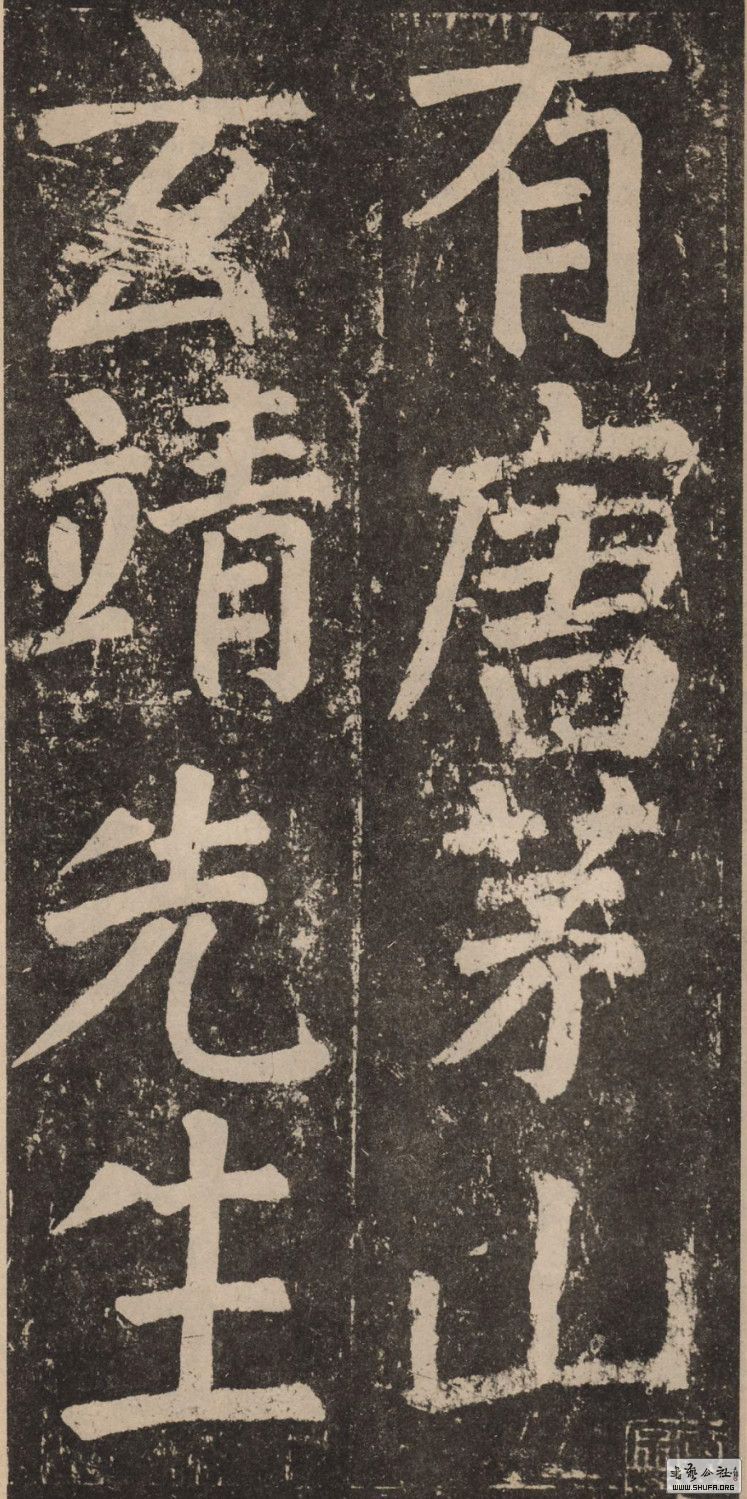 有唐茅山
玄靖先生
WWW.SHUFA.ORG